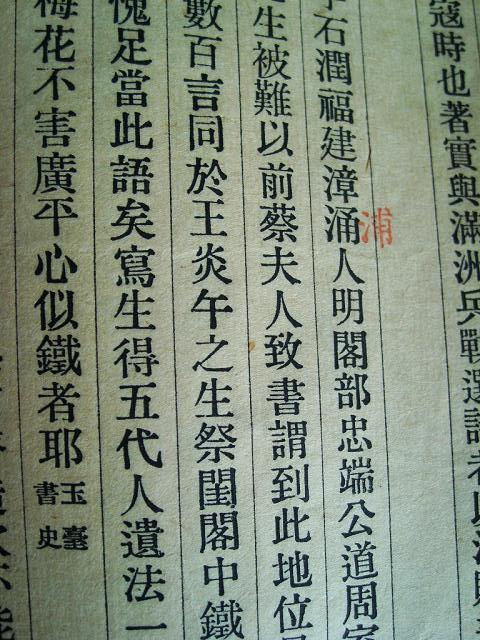 寇時也著實與滿洲兵戰
石潤福建漳涌人明閣部忠端公道周
浦
生被難以前蔡夫人致書謂到此地位
數百言同於王炎午之生祭閨閣中鐵
愧足當此語矣寫生得五代人遺法一
梅花不害廣平心似鐵者耶
玉臺
書史